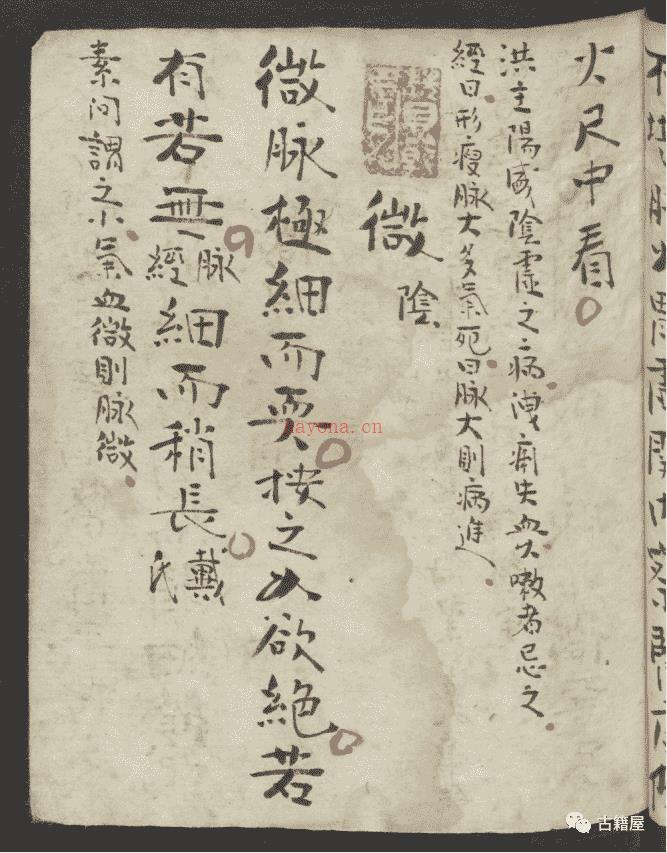 火尺中看
洪主陽盛陰虚之病洩痢失血嗽者忌之
經曰形瘦脉大多氣死曰脉大則病進
微 陰
微脉極細而耎按之如欲絶若
有若無脉經細而稍長戴氏
素問謂之小氣血微則脉微
hayona.cn
古籍屋